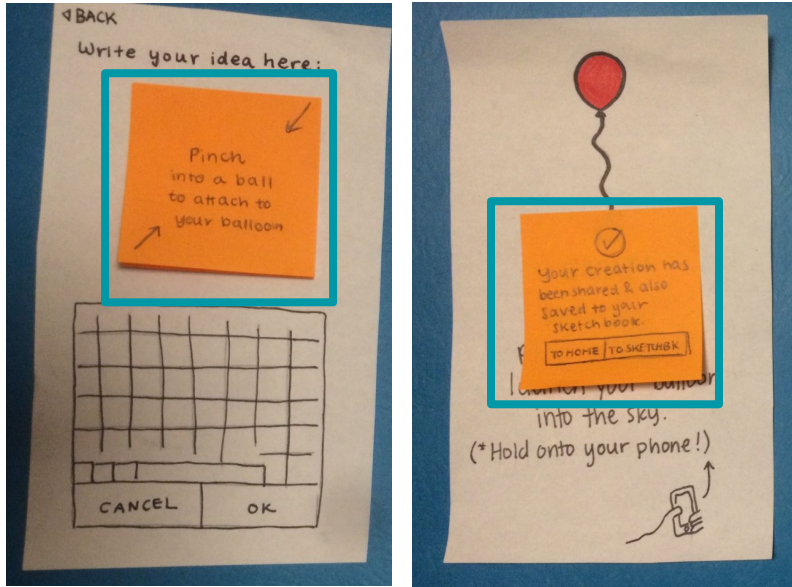 ◁ BACK
Write your idea here:
Pinch
into a ball
to attach to
your balloon
CANCEL
OK
Your creation has
been shared & also
saved to your
sketchbook.
TO HOME
TO SKETCHBK
launch your balloon
into the sky.
(*Hold onto your phone!)